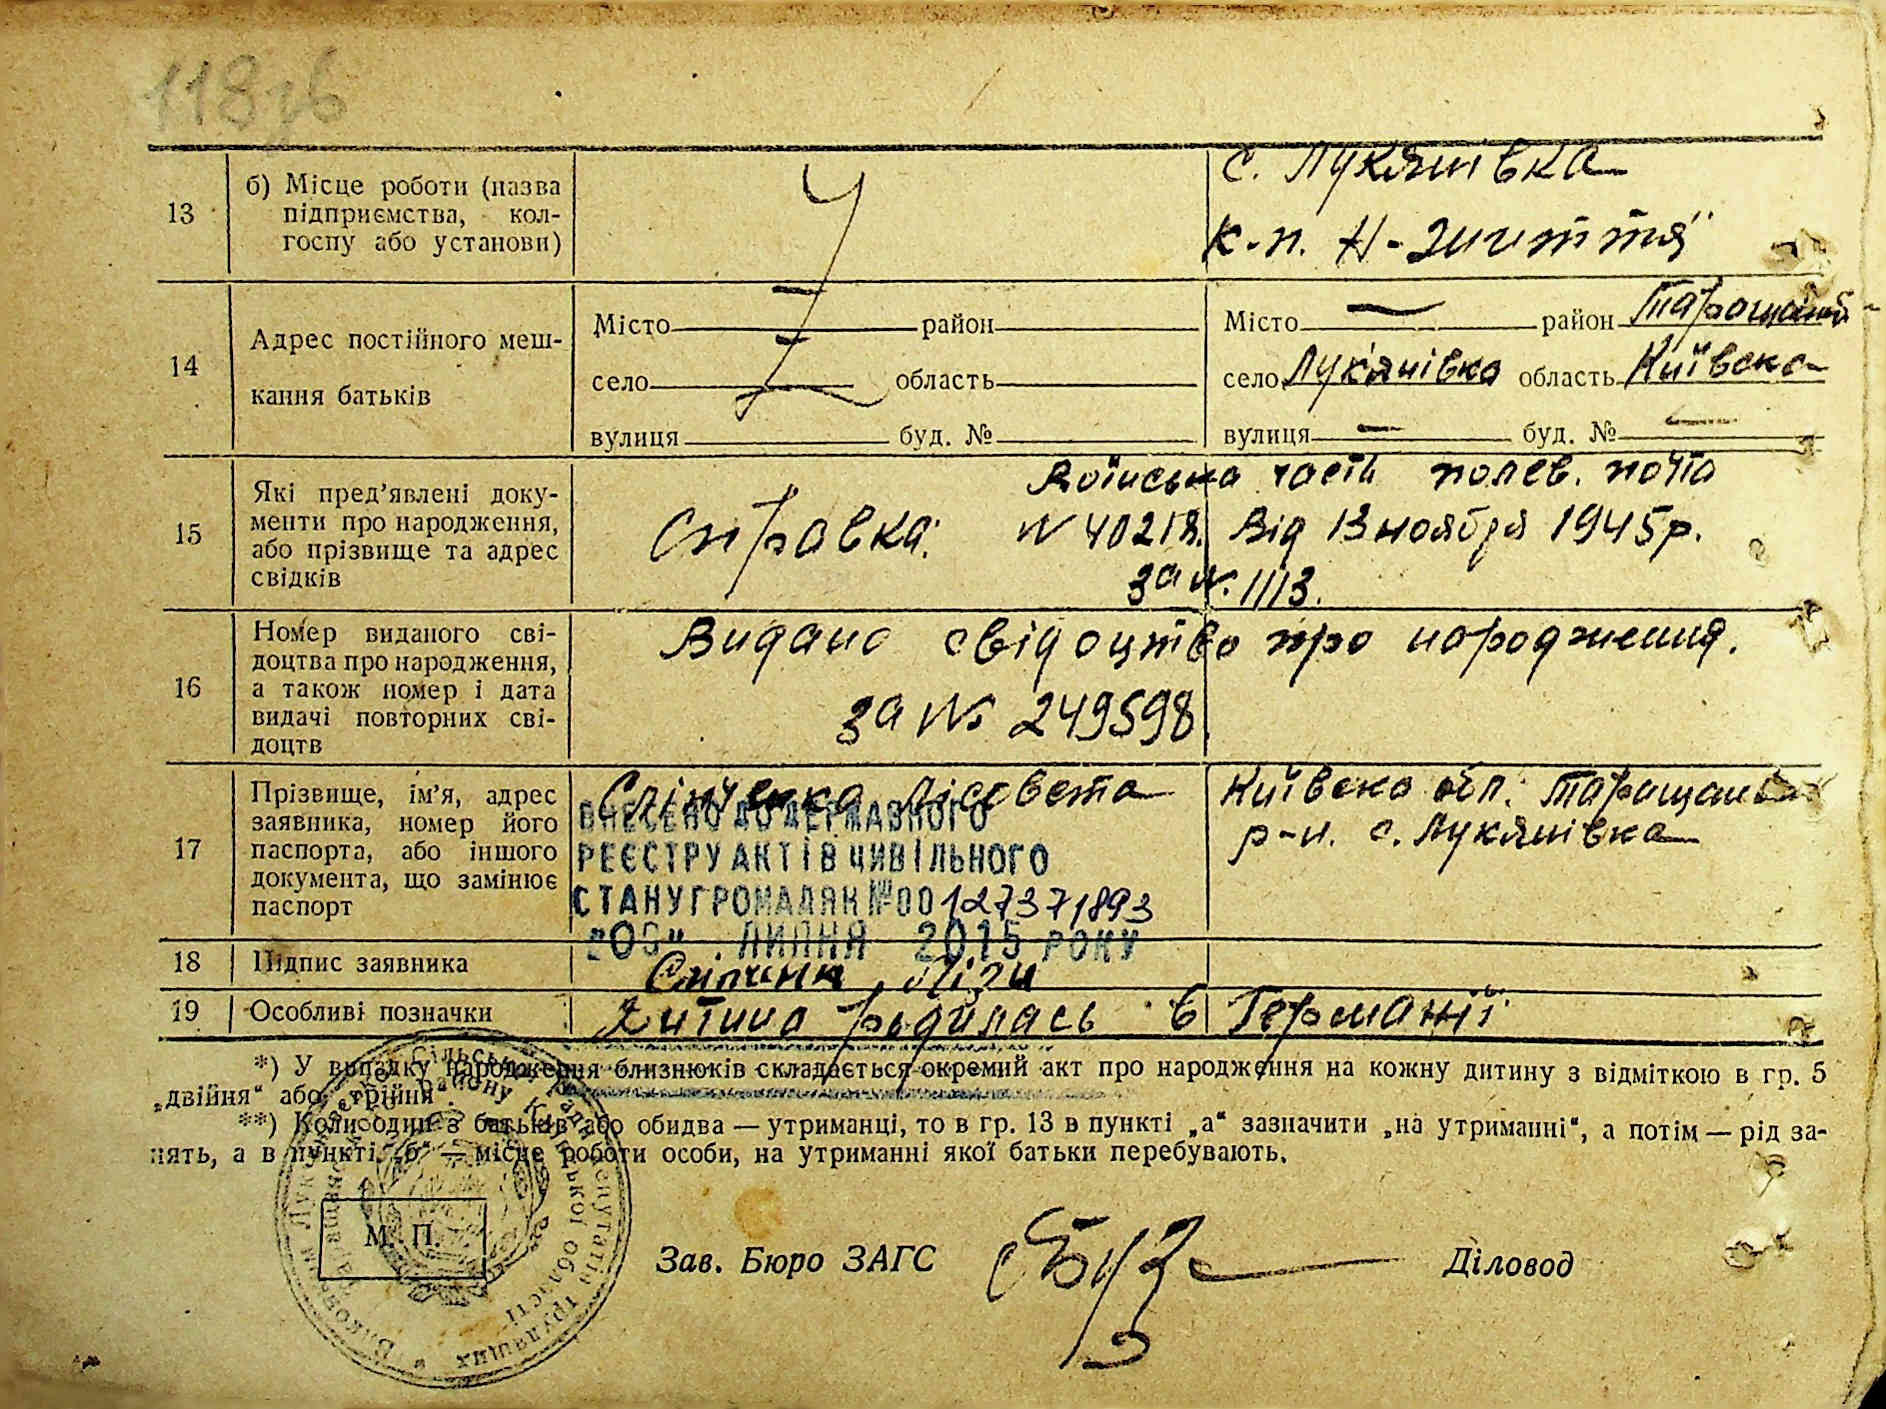 118зв
13
б) Місце роботи (назва
підприємства, кол-
госпу або установи)
с. Лукянівка
к-п. Н-Життя
14
Адрес постійного меш-
кання батьків
Місто — район
село — область
вулиця буд. №
Місто — район Таращанськ
село Лук'янівка область Київська
вулиця — буд. № —
15
Які пред'явлені доку-
менти про народження,
або прізвище та адрес
свідків
Воїнська часть полев. почта
Справка. N 40218. Від 13 ноября 1945р.
за №. 1113.
16
Номер виданого сві-
доцтва про народження,
а також номер і дата
видачі повторних сві-
доцтв
Видано свідоцтво про народження.
за № 249598.
17
Прізвище, ім'я, адрес
заявника, номер його
паспорта, або іншого
документа, що замінює
паспорт
Лісовета
Київська обл. Таращанськ
р-н. с. Лукянівка
ВНЕСЕНО ДО ДЕРЖАВНОГО
РЕЄСТРУ АКТІВ ЦИВІЛЬНОГО
СТАНУ ГРОМАДЯН №00127371893
ЛИПНЯ 2015 РОКУ
18
Підпис заявника
Лізи
19
Особливі позначки
Дитина родилась в Германії
*) У випадку народження близнюків складається окремий акт про народження на кожну дитину з відміткою в гр. 5
„двійня“ або „трійня“.
**) Коли один з батьків або обидва — утриманці, то в гр. 13 в пункті „а“ зазначити „на утриманні“, а потім — рід за-
нять, а в пункті „б“ — місце роботи особи, на утриманні якої батьки перебувають.
М. П.
Зав. Бюро ЗАГС
Діловод